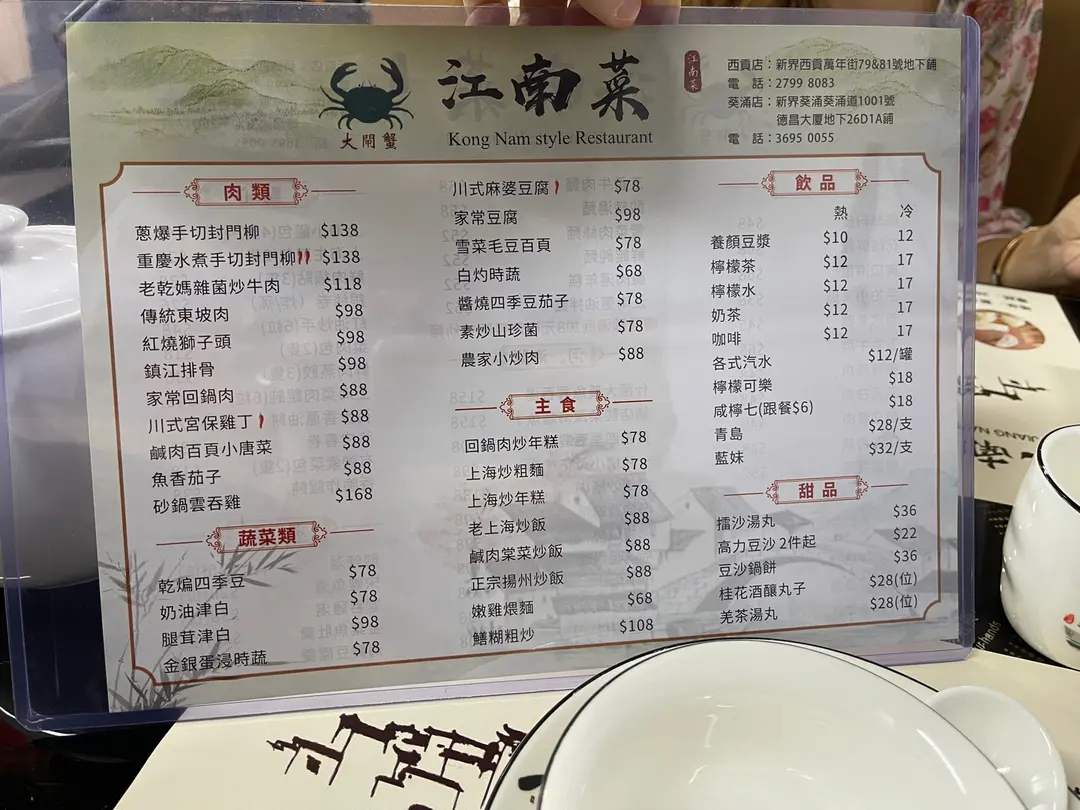 大閘蟹
江南菜
江南菜
Kong Nam style Restaurant
西貢店：新界西貢萬年街79&81號地下舖
電　話：2799 8083
葵涌店：新界葵涌葵涌道1001號
德昌大廈地下26D1A舖
電　話：3695 0055
肉類
蔥爆手切封門柳 $138
重慶水煮手切封門柳 $138
老乾媽雜菌炒牛肉 $118
傳統東坡肉 $98
紅燒獅子頭 $98
鎮江排骨 $98
家常回鍋肉 $88
川式宮保雞丁 $88
鹹肉百頁小唐菜 $88
魚香茄子 $88
砂鍋雲吞雞 $168
蔬菜類
乾煸四季豆 $78
奶油津白 $78
腿茸津白 $98
金銀蛋浸時蔬 $78
川式麻婆豆腐 $78
家常豆腐 $98
雪菜毛豆百頁 $78
白灼時蔬 $68
醬燒四季豆茄子 $78
素炒山珍菌 $78
農家小炒肉 $88
主食
回鍋肉炒年糕 $78
上海炒粗麵 $78
上海炒年糕 $78
老上海炒飯 $88
鹹肉棠菜炒飯 $88
正宗揚州炒飯 $88
嫩雞煨麵 $68
鱔糊粗炒 $108
飲品
熱 冷
養顏豆漿 $10 12
檸檬茶 $12 17
檸檬水 $12 17
奶茶 $12 17
咖啡 $12 17
各式汽水 $12/罐
檸檬可樂 $18
咸檸七(跟餐$6) $18
青島 $28/支
藍妹 $32/支
甜品
擂沙湯丸 $36
高力豆沙 2件起 $22
豆沙鍋餅 $36
桂花酒釀丸子 $28(位)
羌茶湯丸 $28(位)